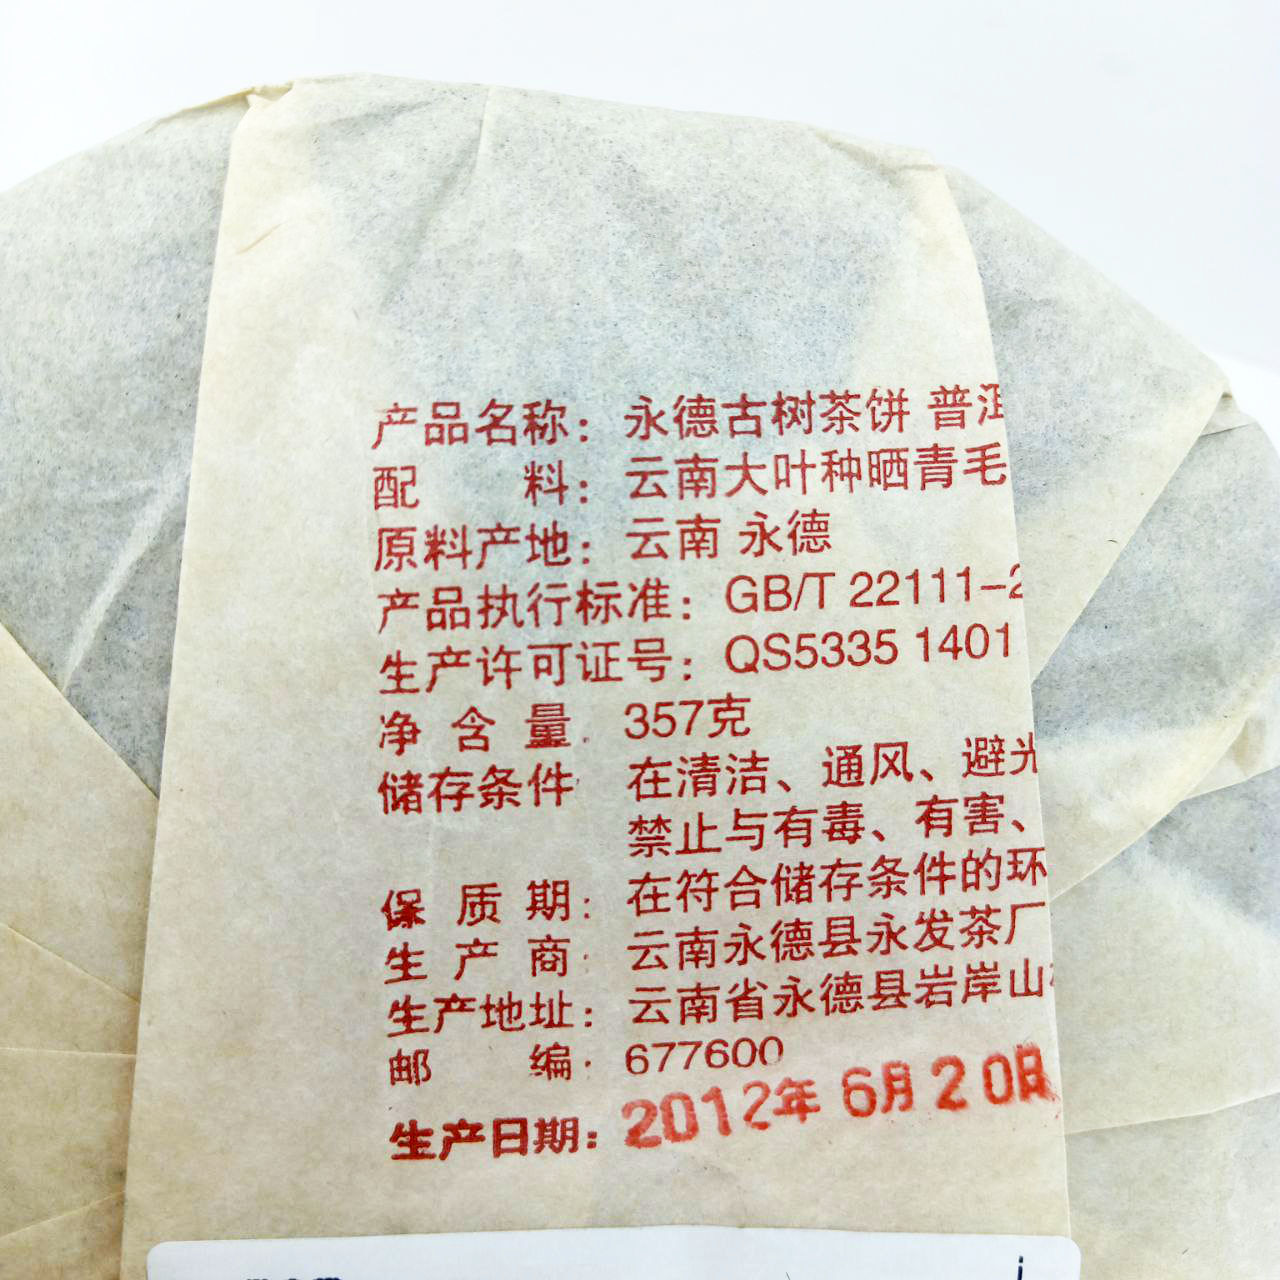 产品名称：永德古树茶饼 普洱
配 料：云南大叶种晒青毛
原料产地：云南 永德
产品执行标准：GB/T 22111-2
生产许可证号：QS5335 1401
净含量：357克
储存条件：在清洁、通风、避光
禁止与有毒、有害、
保质期：在符合储存条件的环
生产商：云南永德县永发茶厂
生产地址：云南省永德县岩岸山
邮 编：677600
生产日期：2012年 6月20日